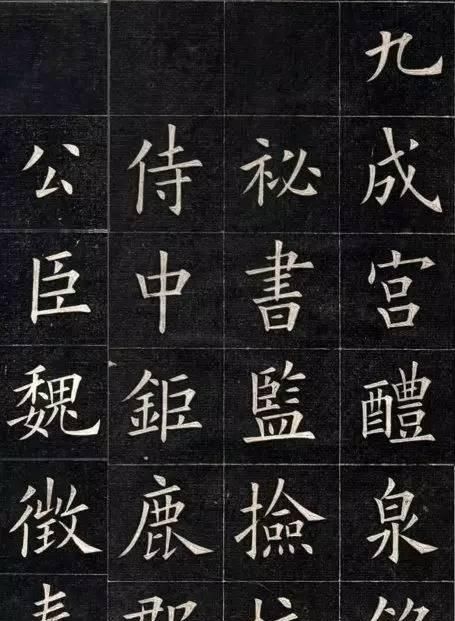 九成宮醴泉
祕書監撿
侍中鉅鹿郡
公臣魏徵